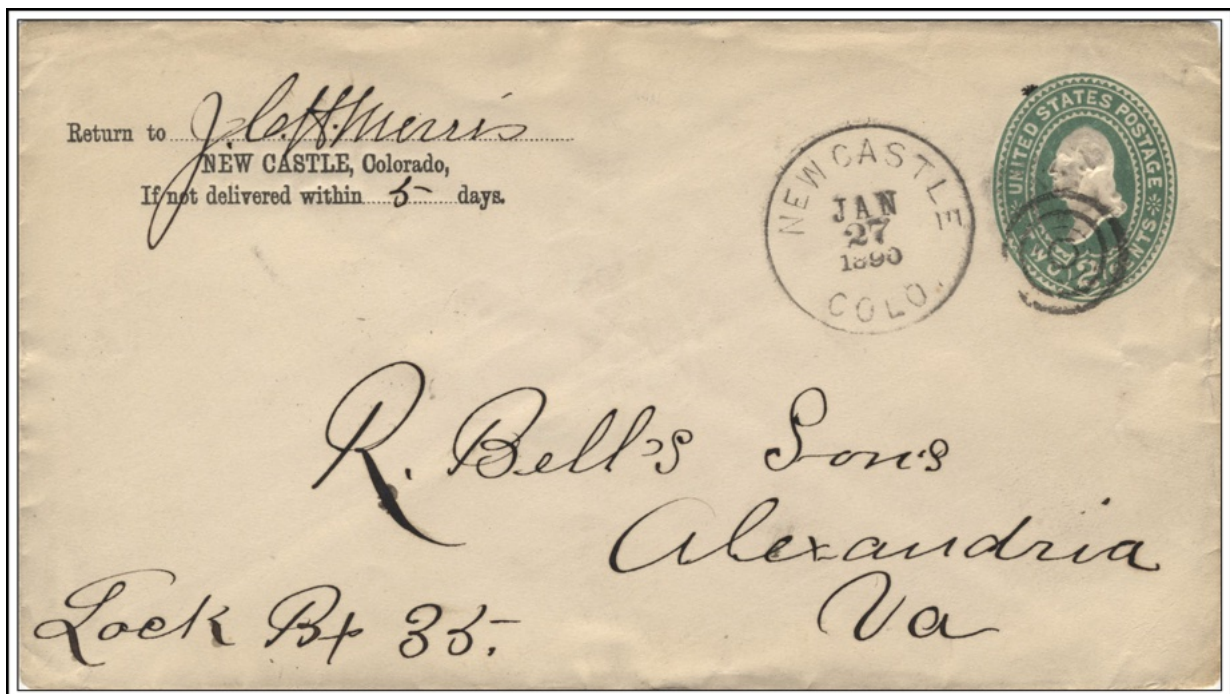 Return to J.C.H. Morris
NEW CASTLE, Colorado,
If not delivered within 5 days.
NEW CASTLE
JAN
27
1890
COLO.
UNITED STATES POSTAGE
TWO 2 CENTS
R. Bell's Sons
Alexandria
Va
Lock Bx 35.